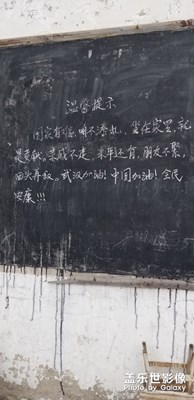 温馨提示
国家有难,咱不添乱,坐在家里,就
是贡献,亲戚不走,来年还有,朋友不聚,
回头再敍。武汉加油!中国加油!全民
安康!!!
盖乐世影像
Photo by Galaxy